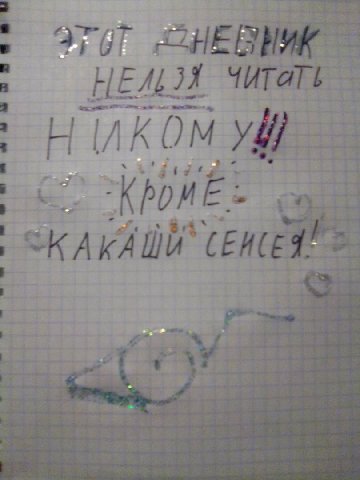 ЭТОТ ДНЕВНИК
НЕЛЬЗЯ ЧИТАТЬ
НИКОМУ!!!
КРОМЕ
КАКАШИ СЕНСЕЯ!